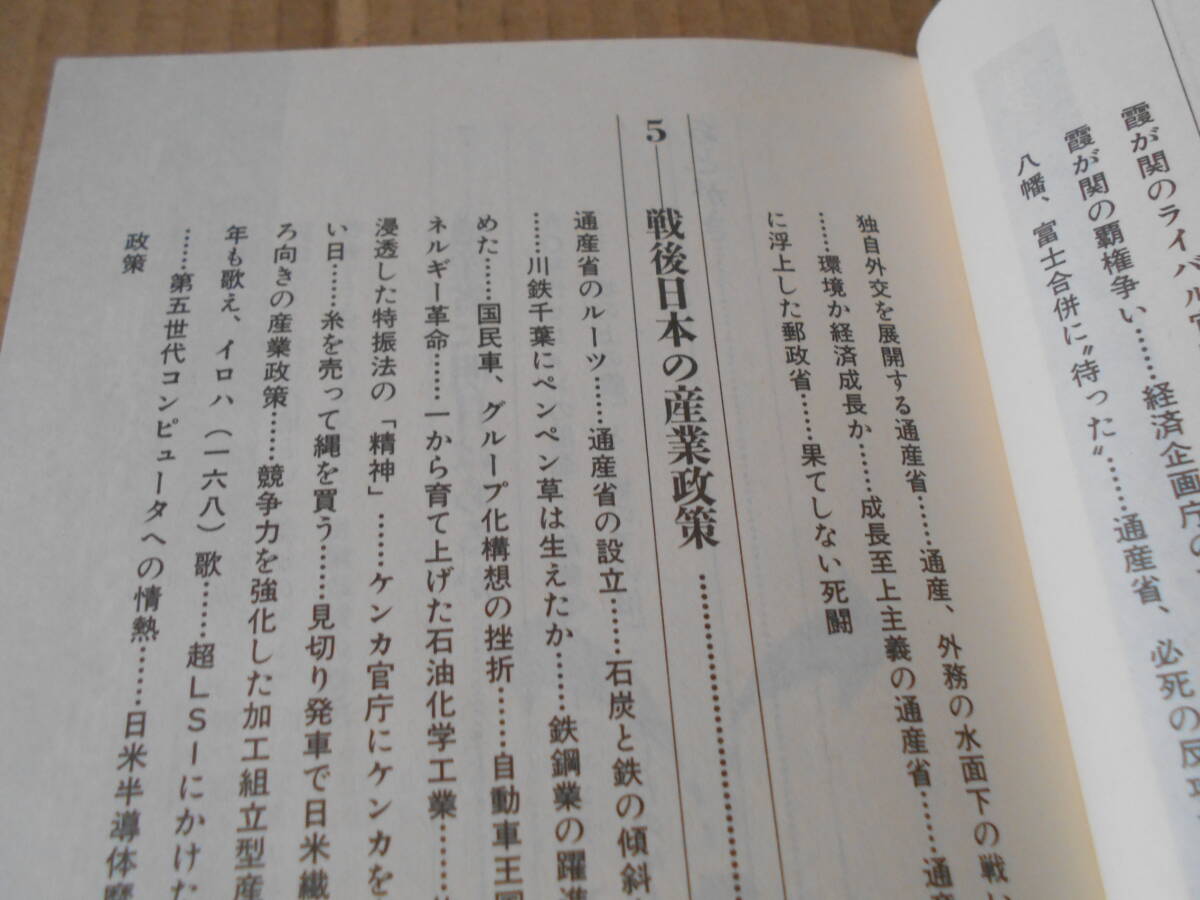 霞が関のライバル官
霞が関の覇権争い……経済企画庁の
八幡、富士合併に〝待った〟……通産省、必死の反
独自外交を展開する通産省……通産、外務の水面下の戦い
……環境か経済成長か……成長至上主義の通産省……通産
に浮上した郵政省……果てしない死闘
5――戦後日本の産業政策……
通産省のルーツ……通産省の設立……石炭と鉄の傾斜
……川鉄千葉にペンペン草は生えたか……鉄鋼業の躍進
めた……国民車、グループ化構想の挫折……自動車王国
ネルギー革命……一から育て上げた石油化学工業……
浸透した特振法の「精神」……ケンカ官庁にケンカを
い日……糸を売って縄を買う……見切り発車で日米繊
ろ向きの産業政策……競争力を強化した加工組立型産
年も歌え、イロハ（一六八）歌……超LSIにかけた
……第五世代コンピュータへの情熱……日米半導体摩
政策